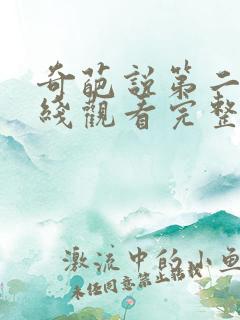 奇葩説第二
綫觀看完整
激流中的小魚
未经同意禁止转载